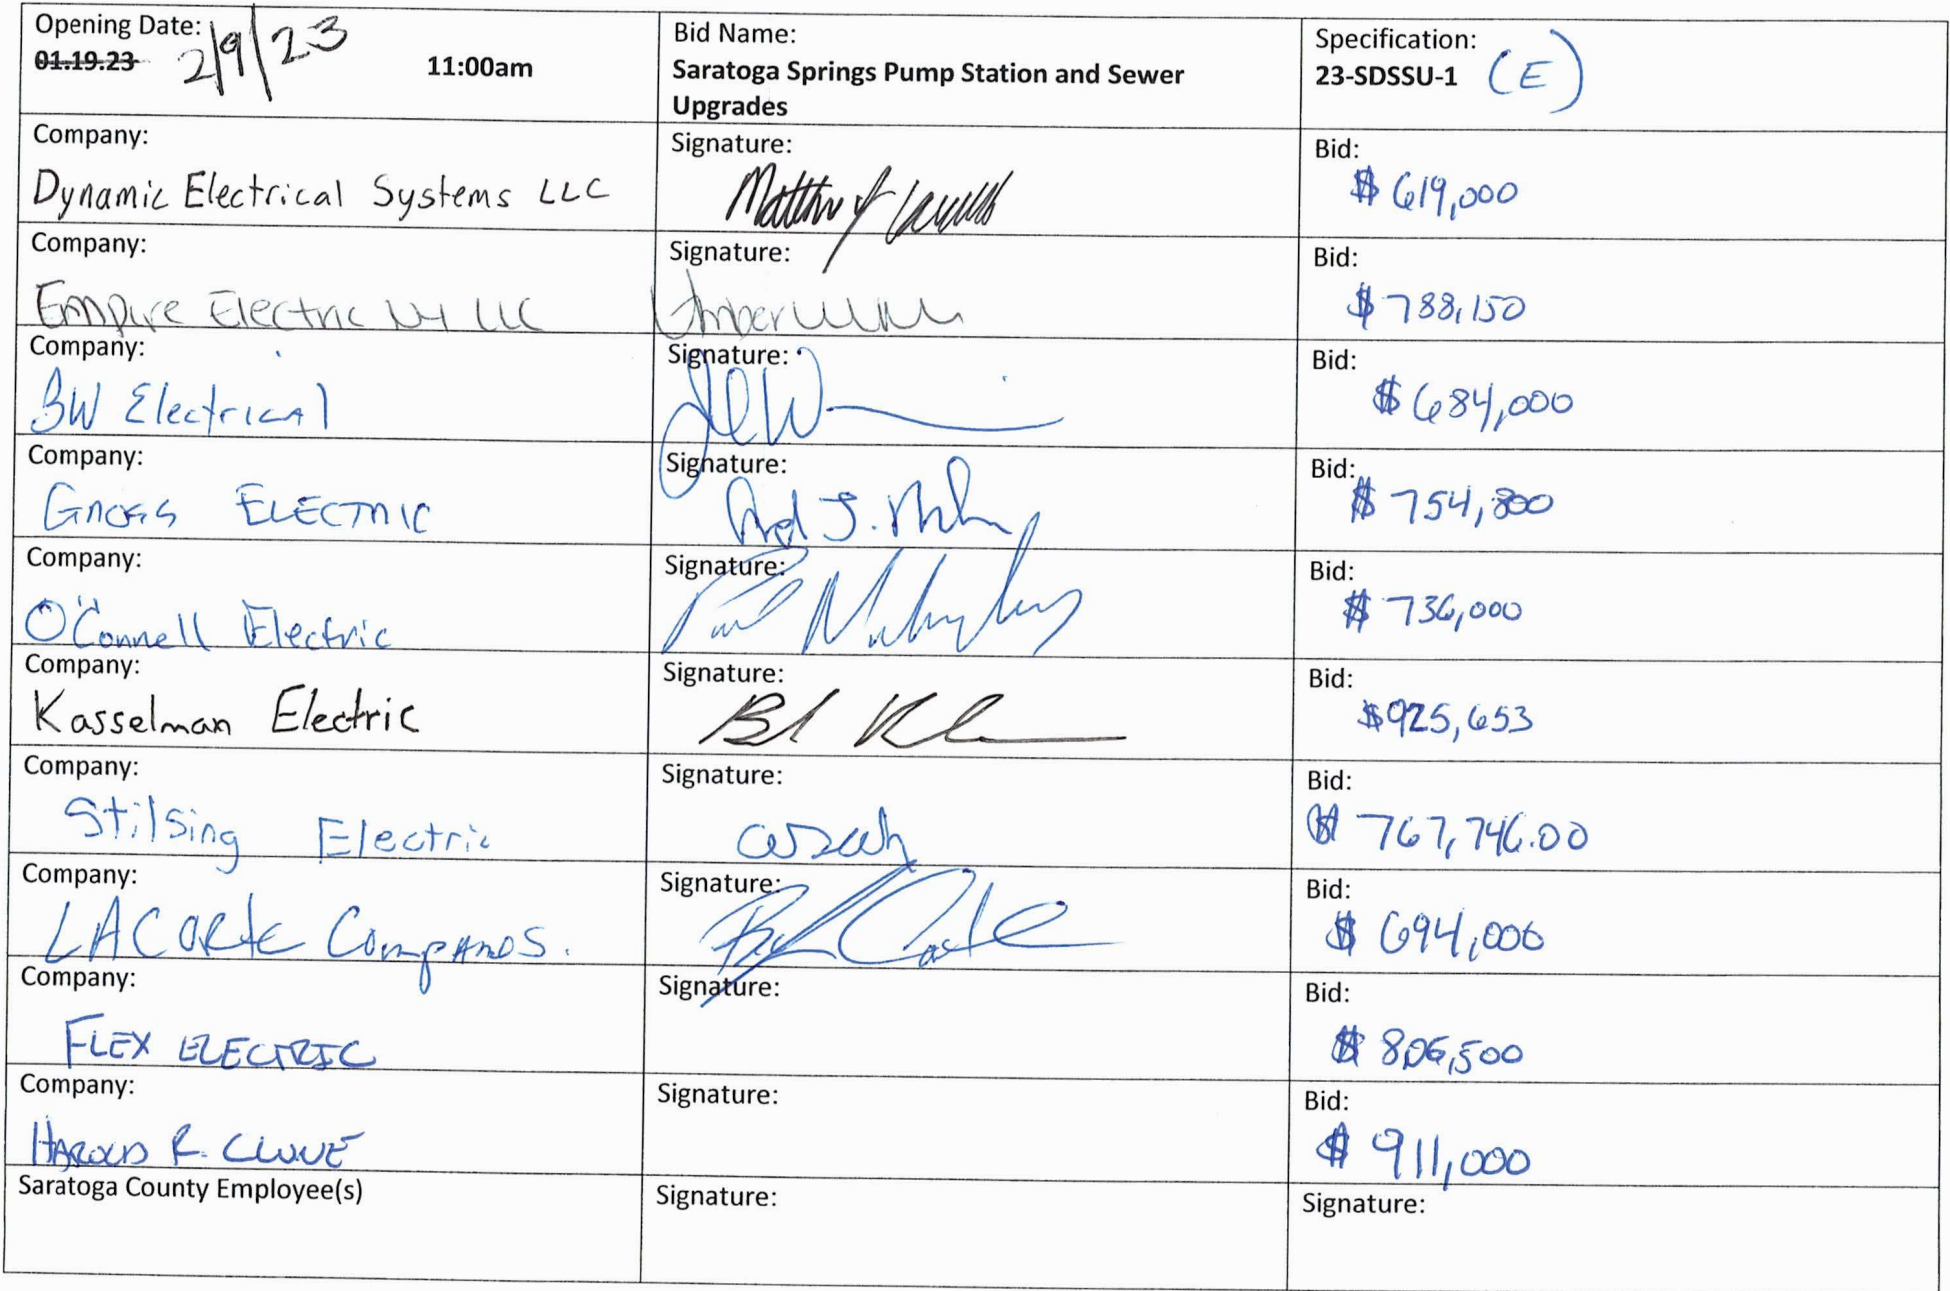 Opening Date: 2/9/23
01.19.23 11:00am
Bid Name:
Saratoga Springs Pump Station and Sewer
Upgrades
Specification:
23-SDSSU-1 (E)
Company:
Dynamic Electrical Systems LLC
Signature:
Bid:
$ 619,000
Company:
Empire Electric NY LLC
Signature:
Bid:
$ 788,150
Company:
BW Electrical
Signature:
Bid:
$ 684,000
Company:
Gross ELECTRIC
Signature:
Bid:
$ 754,800
Company:
O'Connell Electric
Signature:
Bid:
$ 736,000
Company:
Kasselman Electric
Signature:
Bid:
$925,653
Company:
Stilsing Electric
Signature:
Bid:
$ 767,746.00
Company:
LACorte Companies.
Signature:
Bid:
$ 694,000
Company:
FLEX ELECTRIC
Signature:
Bid:
$ 806,500
Company:
HAROLD R. CLUNE
Signature:
Bid:
$ 911,000
Saratoga County Employee(s)
Signature:
Signature: